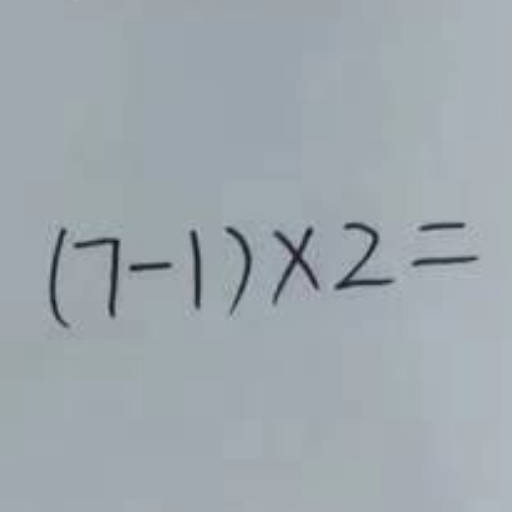 (7-1)×2=